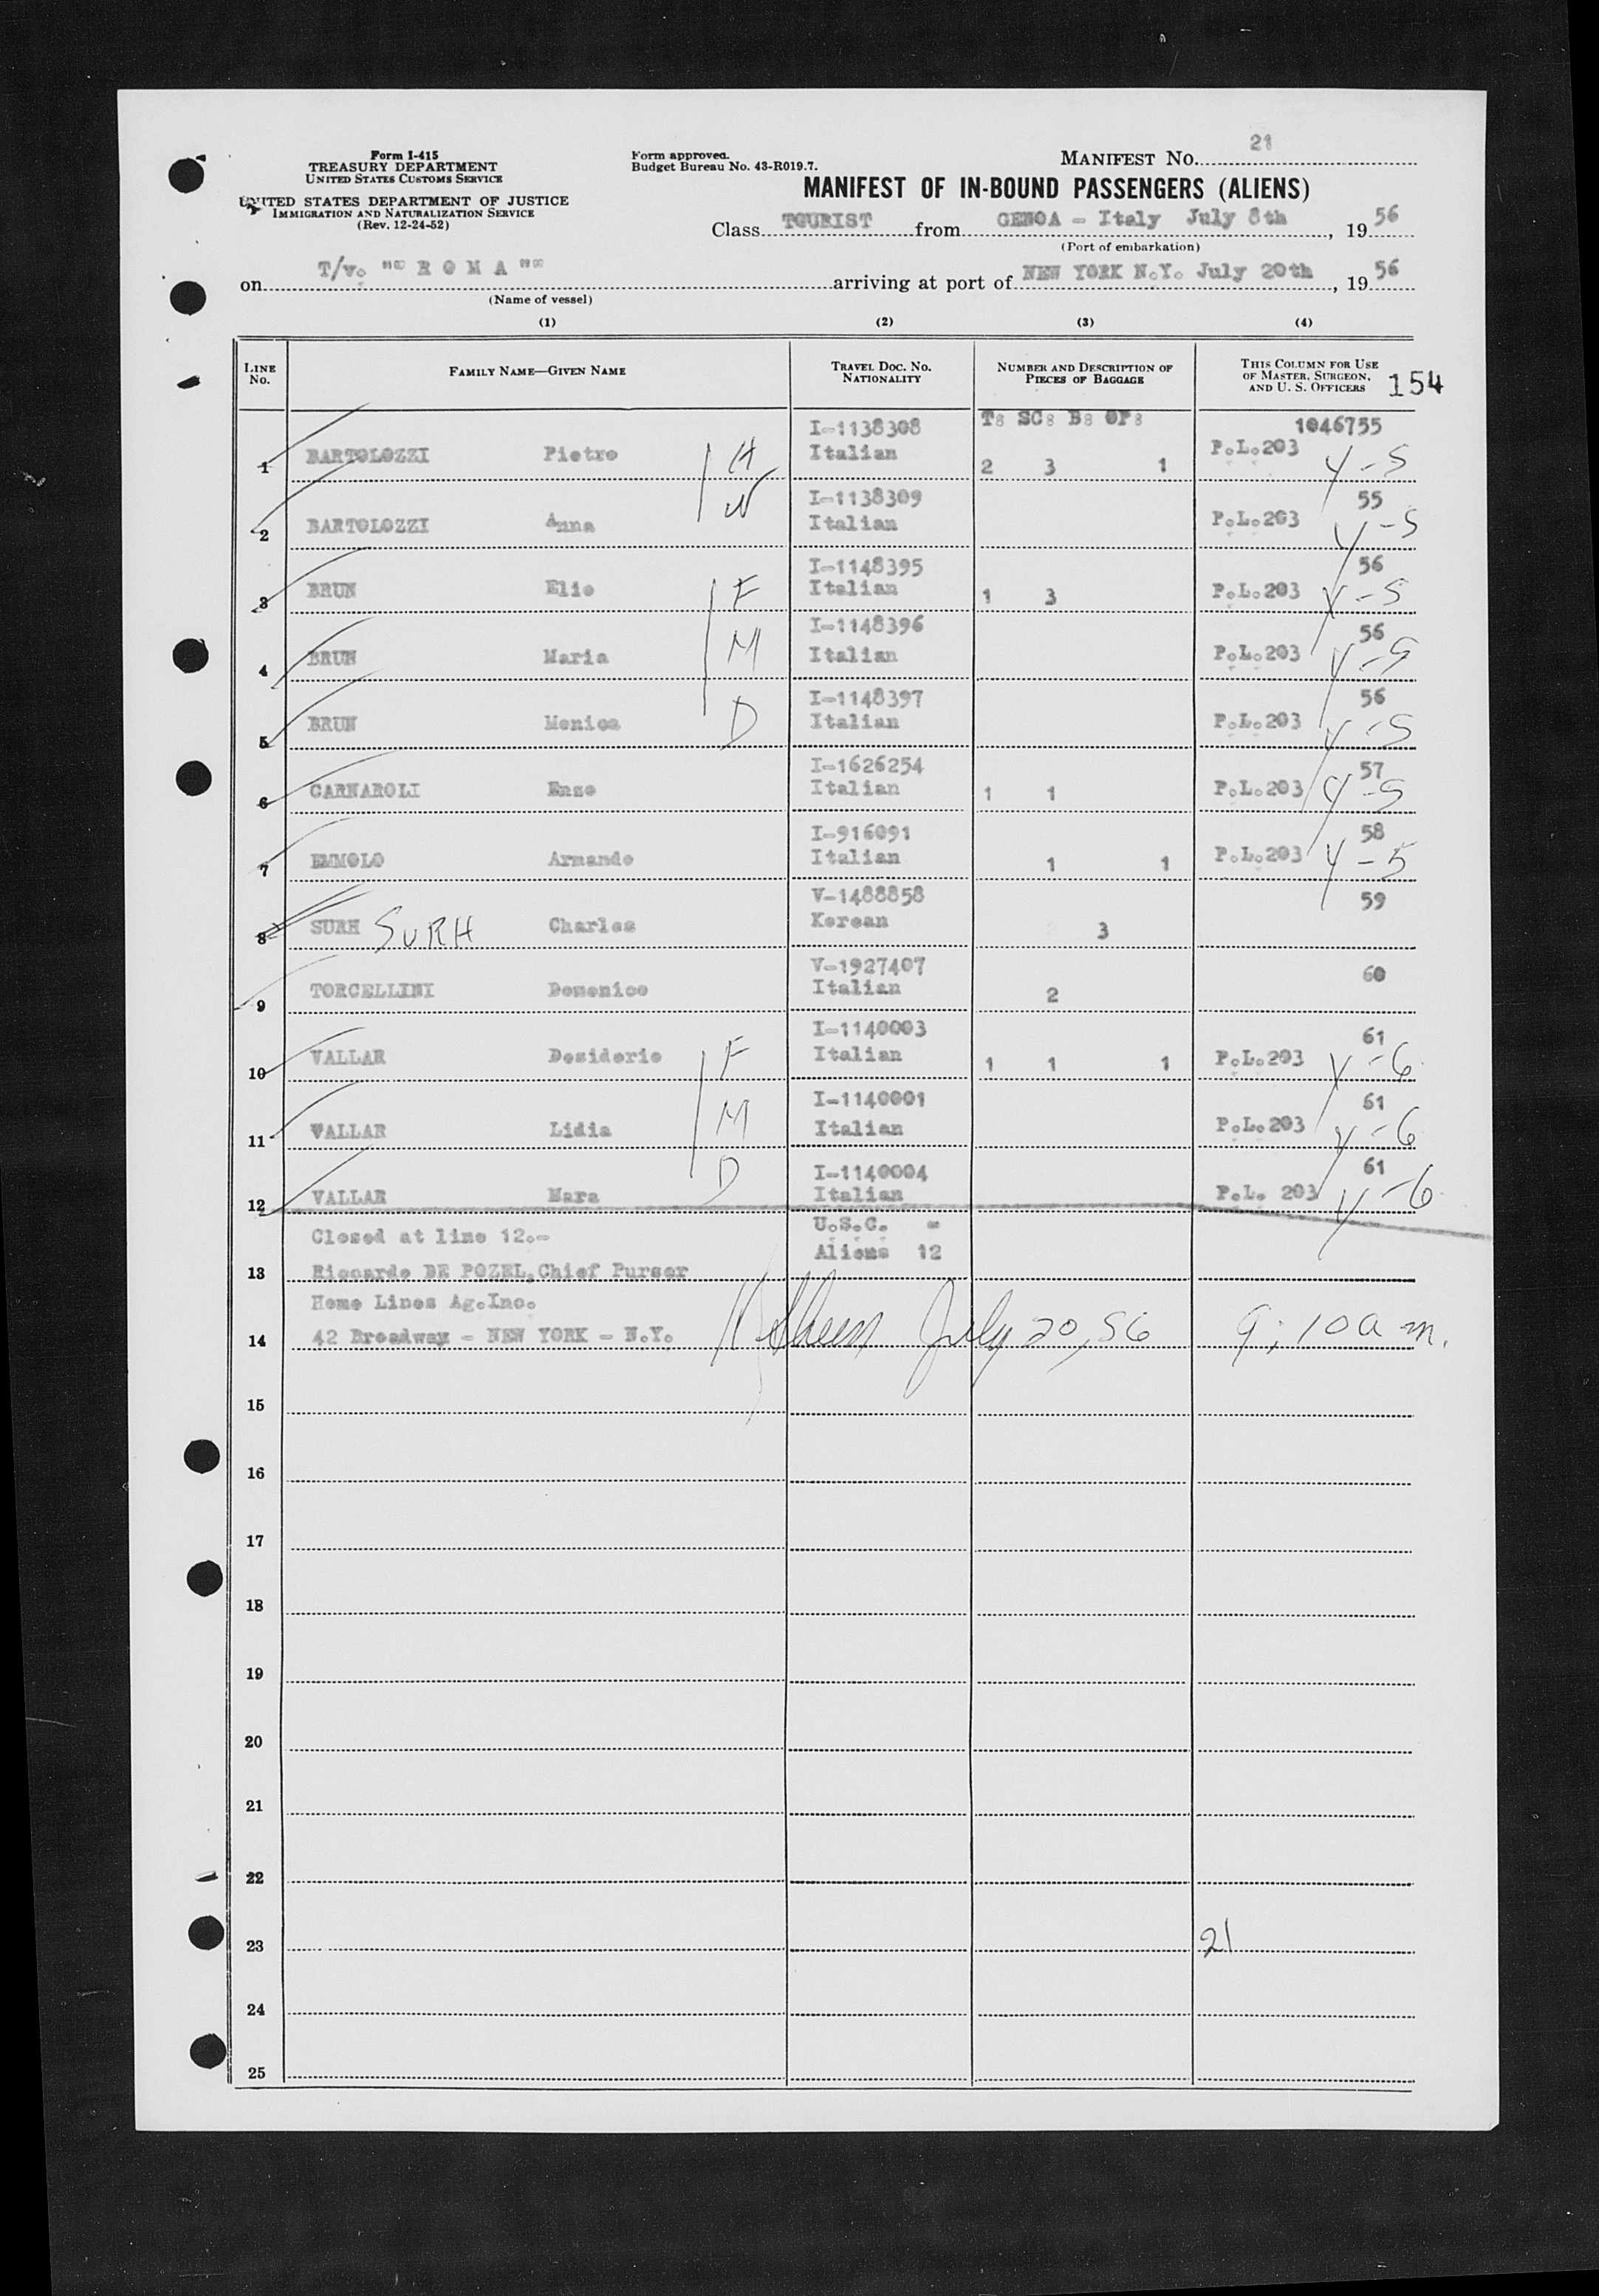 Form I-415
TREASURY DEPARTMENT
UNITED STATES CUSTOMS SERVICE
UNITED STATES DEPARTMENT OF JUSTICE
IMMIGRATION AND NATURALIZATION SERVICE
(Rev. 12-24-52)
Form approved.
Budget Bureau No. 43-R019.7.
MANIFEST No. 21
MANIFEST OF IN-BOUND PASSENGERS (ALIENS)
Class TOURIST from GENOA - Italy July 8th, 1956
(Port of embarkation)
on T/v. "" R O M A "" arriving at port of NEW YORK N.Y. July 20th, 1956
(Name of vessel)
(1) (2) (3) (4)
LINE No. FAMILY NAME—GIVEN NAME TRAVEL DOC. No. NATIONALITY NUMBER AND DESCRIPTION OF PIECES OF BAGGAGE THIS COLUMN FOR USE OF MASTER, SURGEON, AND U. S. OFFICERS 154
T: SC: B: OP:
I-1138308 1046755
1 BARTOLOZZI Pietro H Italian 2 3 1 P.L.203 Y-5
I-1138309 55
2 BARTOLOZZI Anna W Italian P.L.203 Y-5
I-1148395 56
3 BRUN Elio F Italian 1 3 P.L.203 Y-5
I-1148396 56
4 BRUN Maria M Italian P.L.203 Y-5
I-1148397 56
5 BRUN Monica D Italian P.L.203 Y-5
I-1626254 57
6 CARNAROLI Enzo Italian 1 1 P.L.203 Y-5
I-916091 58
7 EMMOLO Armando Italian 1 1 P.L.203 Y-5
V-1488858 59
8 SURH SURH Charles Korean 3
V-1927407 60
9 TORCELLINI Domenico Italian 2
I-1140003 61
10 VALLAR Desiderio F Italian 1 1 1 P.L.203 Y-6
I-1140001 61
11 VALLAR Lidia M Italian P.L.203 Y-6
I-1140004 61
12 VALLAR Mara D Italian P.L. 203 Y-6
Closed at line 12.- U.S.C. -
Aliens 12
13 Riccardo DE POZEL, Chief Purser
Home Lines Ag.Inc.
14 42 Broadway - NEW YORK - N.Y. July 20, 56 9:10 a m.
15
16
17
18
19
20
21
22
23 21
24
25